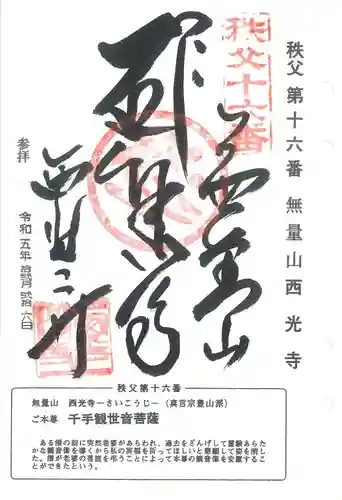 秩父十六番
秩父第十六番 無量山西光寺
無量山
参拝
西光寺
令和五年
六日
秩父第十六番
無量山 西光寺ーさいこうじー(真言宗豊山派)
ご本尊 千手観世音菩薩
ある僧の前に突然老婆があらわれ、過去をざんげして霊験あらた
かな観音像を導くから私の冥福を祈ってほしいと懇願して姿を消し
た。僧が老婆の菩提を弔うことによって本尊の観音像を安置するこ
とができたという。